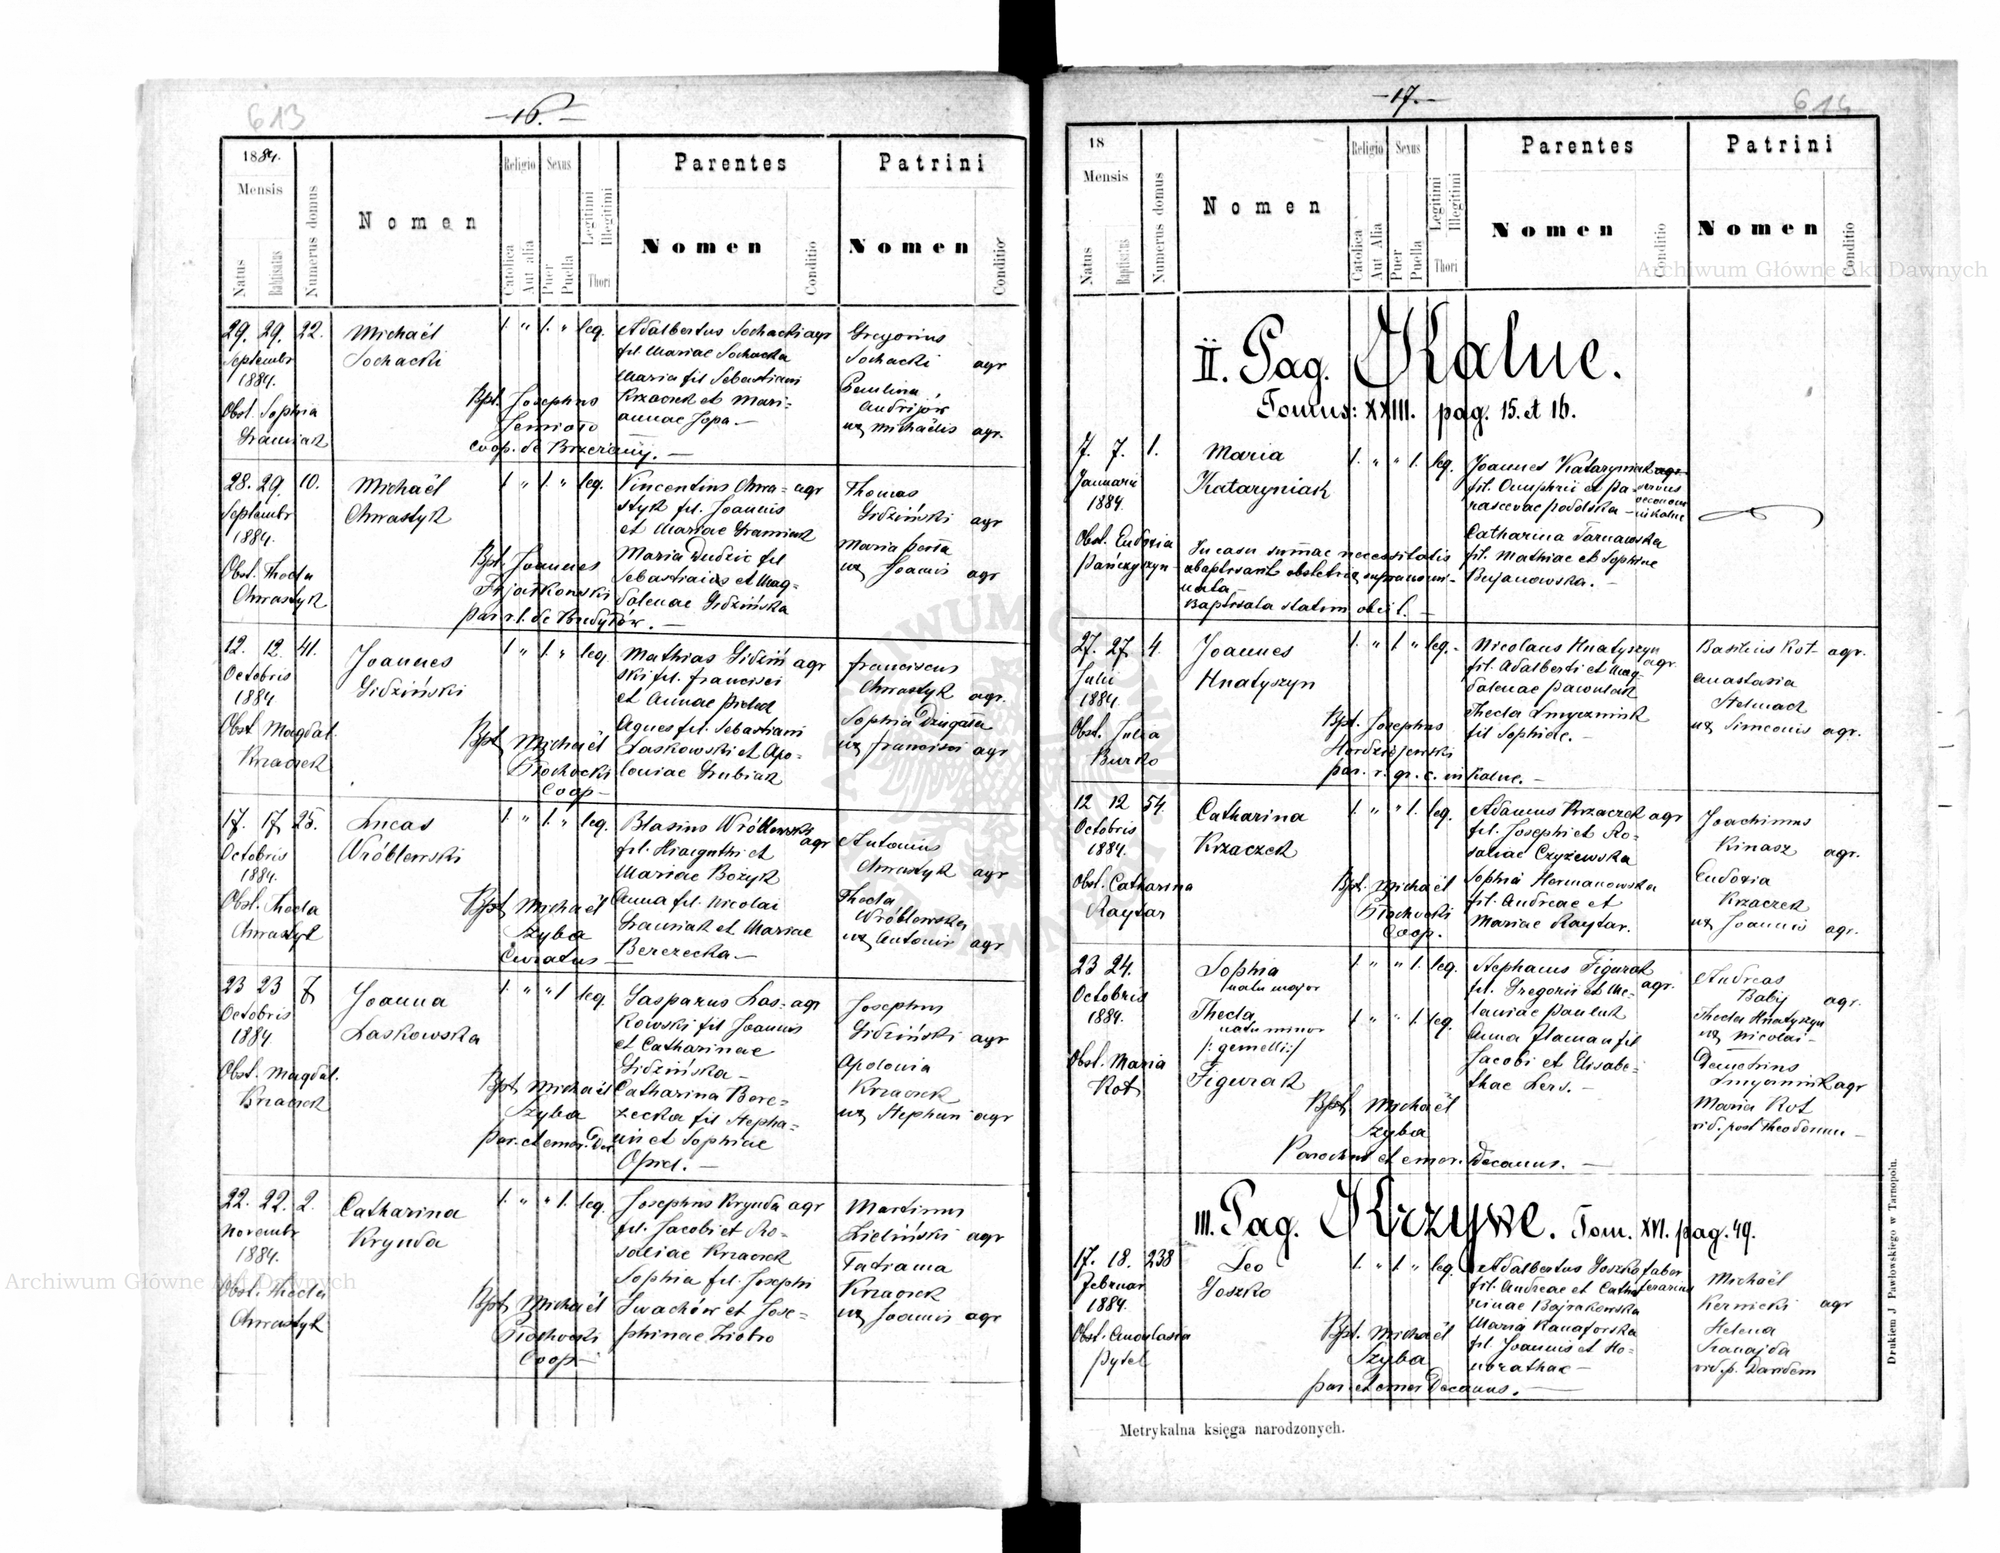 613
—16.—
1884.
Mensis
Natus
Babtisatus
Numerus domus
Nomen
Religio
Catolica
Aut alia
Sexus
Puer
Puella
Legitimi
Illegitimi
Thori
Parentes
Nomen
Conditio
Patrini
Nomen
Conditio
29. 29. 22.
Septembr
1884.
Obst. Sophia
Gramiak
Michaël
Sochacki
1. " 1. " leg.
Bpt. Josephus
coop. de Brzeżany. —
Adalbertus Sochacki agr
fil. Mariae Sochacka
Maria fil Sebastiani
Krzaczek et Mari-
annae Sopa —
Gregorius
Sochacki agr
Paulina
Andrijów
ux Michaëlis agr.
28. 29 10.
Septembr
1884.
Obst. Thecla
Chwastyk
Michaël
Chwastyk
1. " 1. " leg.
Bpt. Joannes
par. r. l. de
Vincentius Chwa- agr
styk fil. Joannis
et Mariae Gramiak
Maria Dudzic fil
Sebastiani et Mag-
dalenae Gidzińska
Thomas
Gidziński agr
Maria
ux Joannis agr
12. 12. 41.
Octobris
1884
Obst Magdal.
Krzaczek
Joannes
Gidziński
1. " 1. " leg
Bpt Michaël
Coop —
Mathias Gidziń agr
ski fil. Francisci
et Annae
Agnes fil. Sebastiani
Laskowski et Apo-
loniae Grubiak
Franciscus
Chwastyk agr.
Sophia
ux Francisci agr
17. 17 25.
Octobris
1884.
Obst. Thecla
Chwastyk
Lucas
Wróblewski
1. " 1. " leg.
Bpt Michaël
Szyba
Curatus —
Blasius Wróblewski
agr
fil. Hiacynthi et
Mariae Bożyk
Anna fil. Nicolai
Gramiak et Mariae
Berezecka —
Antonius
Chwastyk agr
Thecla
Wróblewska
ux Antonii agr
23 23 7
Octobris
1884
Obst. Magdal.
Krzaczek
Joanna
Laskowska
1. " " 1 leg
Bpt Michaël
Szyba
par. et emer. Dec
Gasparus Las- agr
kowski fil Joannis
et Catharinae
Gidzińska —
Catharina Bere-
zecka fil Stepha-
ni et Sophiae
Josephus
Gidziński agr
Apolonia
Krzaczek
ux Stephani agr
22. 22. 2.
Novembr
1884.
Obst. Thecla
Chwastyk
Catharina
Krynda
1. " " 1. leg.
Bpt Michaël
Coop —
Josephus Krynda agr
fil. Jacobi et Ro-
saliae Krzaczek
Sophia fil. Josephi
Swachów et Jose-
phinae Ziobro
Martinus
Zieliński agr
Tatianna
Krzaczek
ux Joannis agr
614
—17.—
18
Mensis
Natus
Baptisatus
Numerus domus
Nomen
Religio
Catolica
Aut Alia
Sexus
Puer
Puella
Legitimi
Illegitimi
Thori
Parentes
Nomen
Conditio
Patrini
Nomen
Conditio
II. Pag. Kalne.
Tomus: XXIII. pag. 15. et 16.
7. 7. 1.
Januarii
1884.
Obst. Eudoxia
Pańczyszyn
Maria
Kataryniak
1. " " 1. leg.
In casu summae necessitatis
abaptisavit obstetrix supranomi-
nata
Baptisata statim obiit. —
Joannes Kataryniak
fil. Onuphrii et Pa-
rascevae Podolska —
servus
oeconom
in Kalne
Catharina Tarnawska
fil. Mathiae et Sophiae
Bujanowska. —
27. 27 4.
Julii
1884.
Obst. Julia
Burko
Joannes
Hnatyszyn
1. " 1 " leg. -
Bpt. Josephus
Hordzijewski
par. r. gr. c. in Kalne. —
Nicolaus Hnatyszyn
agr.
fil. Adalberti et Mag-
dalenae Pawluk
Thecla Smyczniuk
fil Sophiae. —
Basilius Kot agr.
Anastasia
Stelmach
ux Simeonis agr.
12 12 54.
Octobris
1884.
Obst. Catharina
Raytar
Catharina
Krzaczek
1. " " 1. leg.
Bpt. Michaël
Coop.
Adamus Krzaczek agr
fil. Josephi et Ro-
saliae Czyżewska
Sophia Hermanowska
fil. Andreae et
Mariae Raytar.
Joachimus
Kinasz agr.
Eudoxia
Krzaczek
ux Joannis agr.
23 24.
Octobris
1884.
Obst. Maria
Kot
Sophia
natu major
Thecla
natu minor
/: gemelli :/
Figurak
1. " " 1. leg.
1. " " 1. leg
Bpt Michaël
Szyba
Parochus et emer. Decanus. —
Stephanus Figurak
agr.
fil. Gregorii et Me-
laniae Pawluk
Anna Flaman fil
Jacobi et Elisabe-
thae Lers. —
Andreas
Babij agr.
Thecla Hnatyszyn
ux Nicolai —
Demetrius
Smyczniuk agr
Maria Kot
vid. post Theodorum —
III. Pag. Krzywe. Tom. XVI. pag. 49.
17. 18. 238
Februar
1884.
Obst. Anastasia
Pytel
Leo
Goszko
1. " 1 " leg
Bpt. Michaël
Szyba
par. et emer Decanus. —
Adalbertus Goszko faber
ferarius
fil. Andreae et Catha-
rinae Bojrakowska
Maria Kanaforska
fil. Joannis et Ho-
norathae —
Michaël
Kernicki agr
Helena
vid. p. Davidem
Metrykalna księga narodzonych.
Drukiem J Pawłowskiego w Tarnopolu.
Archiwum Główne Akt Dawnych
Archiwum Główne Akt Dawnych